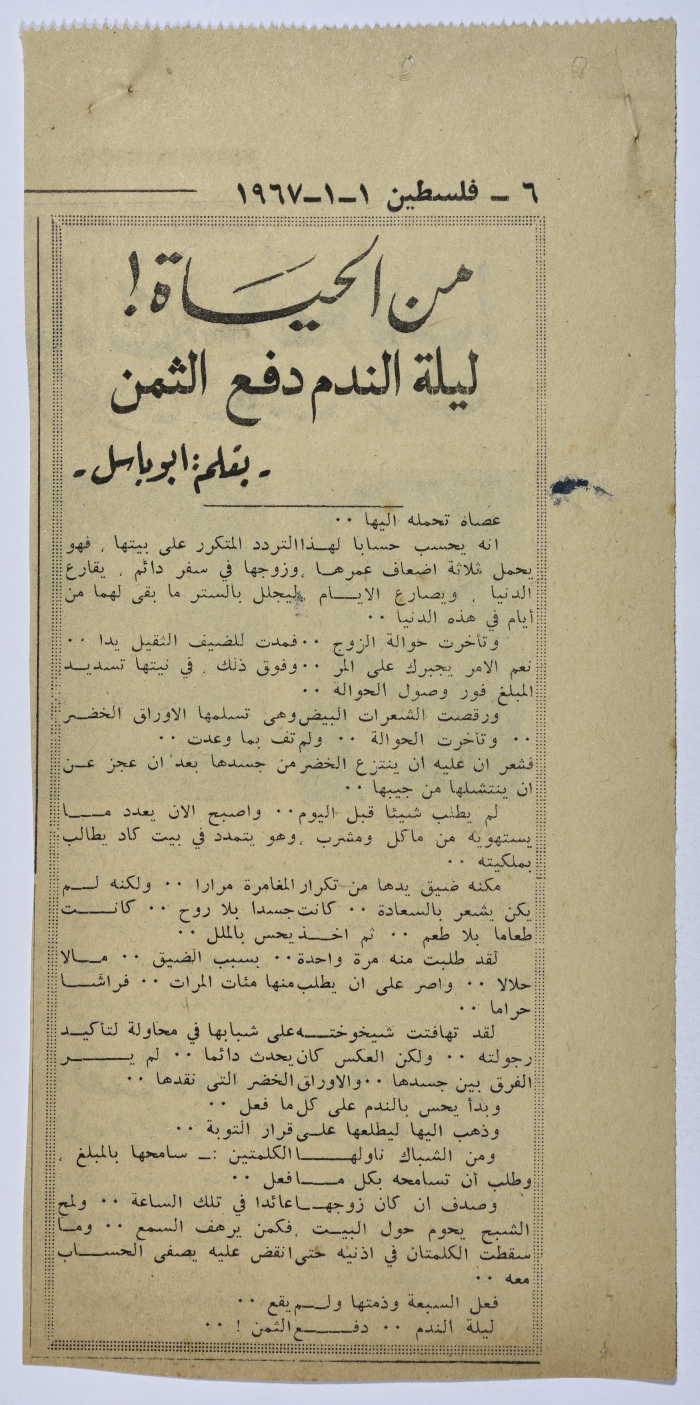 ٦ - فلسطين ١-١-١٩٦٧
من الحياة !
ليلة الندم دفع الثمن
- بقلم : ابو باسل -
عصاه تحمله اليها ٠٠
انه يحسب حسابا لهذا التردد المتكرر على بيتها ، فهو
يحمل ثلاثة اضعاف عمرها ، وزوجها في سفر دائم ، يقارع
الدنيا ، ويصارع الايام ، ليجلل بالستر ما بقى لهما من
أيام في هذه الدنيا ٠٠
وتأخرت حوالة الزوج ٠٠ فمدت للضيف الثقيل يدا ٠٠
نعم الامر يجبرك على المر ٠٠ وفوق ذلك ، في نيتها تسديد
المبلغ فور وصول الحوالة ٠٠
ورقصت الشعرات البيض وهى تسلمها الاوراق الخضر
٠٠ وتأخرت الحوالة ٠٠ ولم تف بما وعدت ٠٠
فشعر ان عليه ان ينتزع الخضر من جسدها بعد ان عجز عن
ان ينتشلها من جيبها ٠٠
لم يطلب شيئا قبل اليوم ٠٠ واصبح الان يعدد ما
يستهويه من ماكل ومشرب ، وهو يتمدد في بيت كاد يطالب
بملكيته ٠٠
مكنه ضيق يدها من تكرار المغامرة مرارا ٠٠ ولكنه لم
يكن يشعر بالسعادة ٠٠ كانت جسدا بلا روح ٠٠ كانت
طعاما بلا طعم ٠٠ ثم اخذ يحس بالملل ٠٠
لقد طلبت منه مرة واحدة ٠٠ بسبب الضيق ٠٠ مالا
حلالا ٠٠ واصر على ان يطلب منها مئات المرات ٠٠ فراشا
حراما ٠٠
لقد تهافتت شيخوخته على شبابها في محاولة لتأكيد
رجولته ٠٠ ولكن العكس كان يحدث دائما ٠٠ لم ير
الفرق بين جسدها ٠٠ والاوراق الخضر التى نقدها ٠٠
وبدأ يحس بالندم على كل ما فعل ٠٠
وذهب اليها ليطلعها على قرار التوبة ٠٠
ومن الشباك ناولها الكلمتين :ـ سامحها بالمبلغ ،
وطلب أن تسامحه بكل ما فعل ٠٠
وصدف ان كان زوجها عائدا في تلك الساعة ٠٠ ولمح
الشبح يحوم حول البيت ، فكمن يرهف السمع ٠٠ وما
سقطت الكلمتان في اذنيه حتى انقض عليه يصفى الحساب
معه ٠٠
فعل السبعة وذمتها ولم يقع ٠٠
ليلة الندم ٠٠ دفع الثمن ! ٠٠